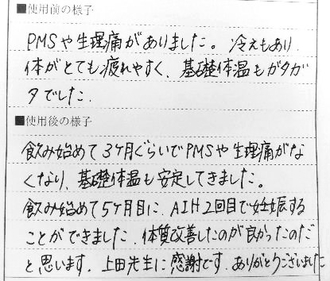 ■使用前の様子
PMSや生理痛がありました。冷えもあり、
体がとても疲れやすく、基礎体温もガタガ
タでした。
■使用後の様子
飲み始めて3ヶ月ぐらいでPMSや生理痛がな
くなり、基礎体温も安定してきました。
飲み始めて5ヶ月目に、AIH2回目で妊娠する
ことができました。体質改善したのが良かったのだ
と思います。上田先生に感謝です。ありがとうございました